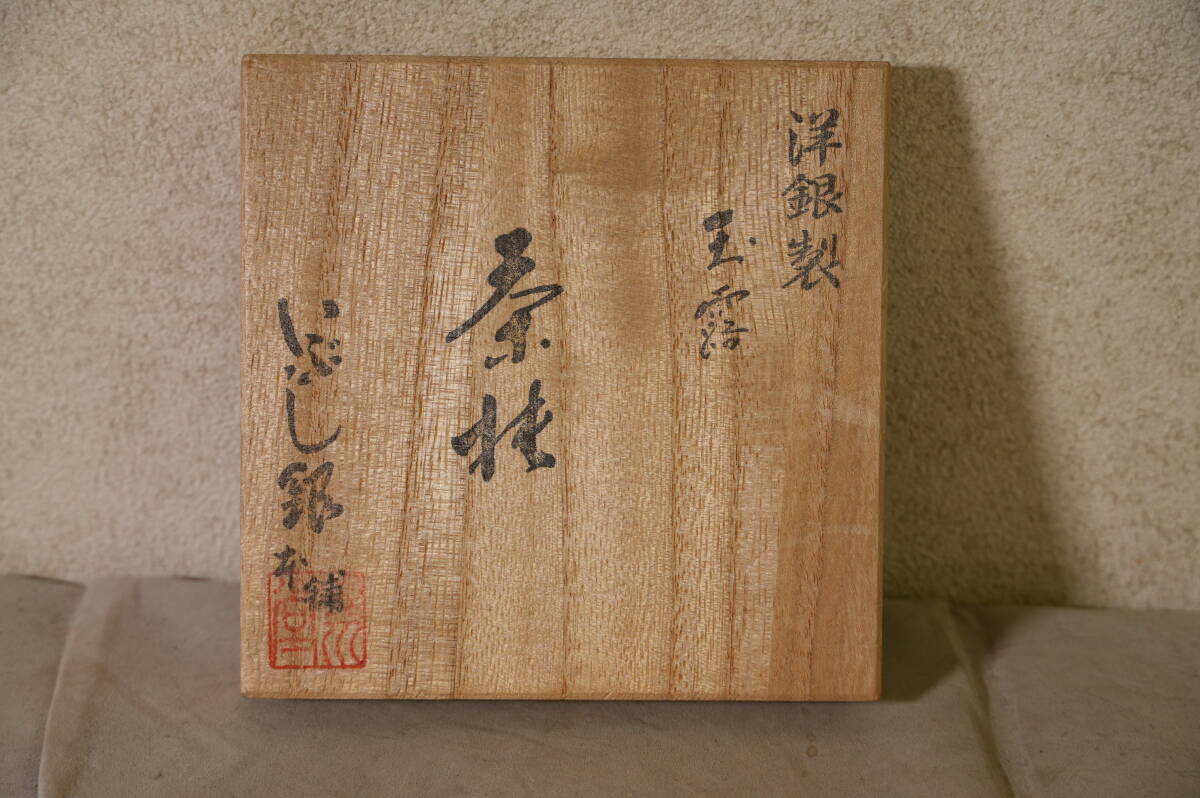 洋銀製
玉露
茶托
いぶし銀
本舗